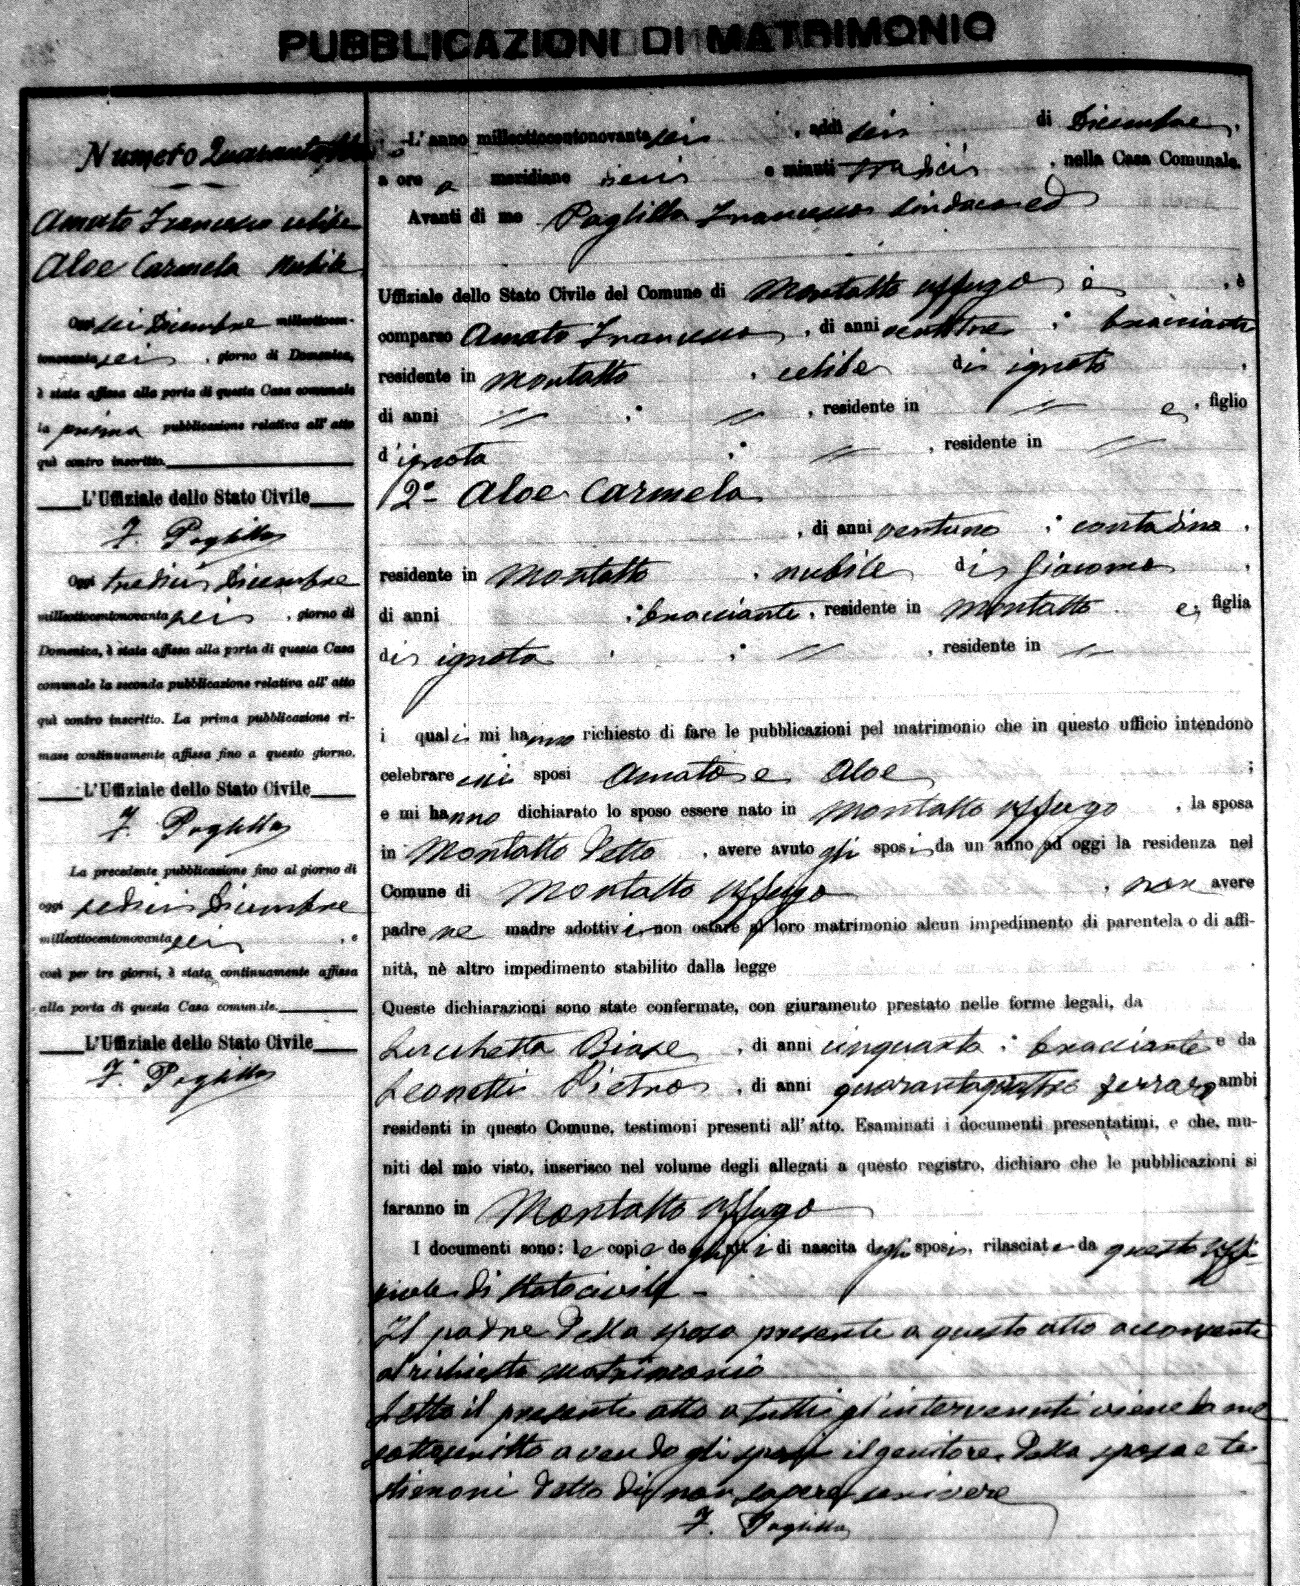 PUBBLICAZIONI DI MATRIMONIO
Numero Quarantotto
Amato Francesco celibe
Aloe Carmela nubile
Oggi sei Dicembre milleottocen-
tonovantasei, giorno di Domenica,
è stata affissa alla porta di questa Casa comunale
la prima pubblicazione relativa all' atto
quì contro inscritto.
L'Uffiziale dello Stato Civile
F. Poglilla
Oggi tredici Dicembre
milleottocentonovantasei, giorno di
Domenica, è stata affissa alla porta di questa Casa
comunale la seconda pubblicazione relativa all' atto
quì contro inscritto. La prima pubblicazione ri-
mase continuamente affissa fino a questo giorno.
L'Uffiziale dello Stato Civile
F. Poglilla
La precedente pubblicazione fino al giorno di
oggi sedici Dicembre
milleottocentonovantasei, e
così per tre giorni, è stata continuamente affissa
alla porta di questa Casa comunale.
L'Uffiziale dello Stato Civile
F. Poglilla
L' anno milleottocentonovantasei, addì sei di Dicembre,
a ore a meridiane dieci e minuti tredici, nella Casa Comunale.
Avanti di me Poglilla Francesco sindaco ed
Uffiziale dello Stato Civile del Comune di Montalto Uffugo è, è
comparso Amato Francesco, di anni ventitre, bracciante
residente in Montalto, celibe di ignoto,
di anni // , // , residente in // e, figlio
d'ignota , // , residente in //
2° Aloe Carmela
, di anni ventuno, contadina,
residente in Montalto, nubile di Giacomo,
di anni , bracciante, residente in Montalto e, figlia
di ignota , // , residente in //
i quali mi hanno richiesto di fare le pubblicazioni pel matrimonio che in questo ufficio intendono
celebrare essi sposi Amato e Aloe ;
e mi hanno dichiarato lo sposo essere nato in Montalto Uffugo, la sposa
in Montalto detto, avere avuto gli sposi da un anno ad oggi la residenza nel
Comune di Montalto Uffugo, non avere
padre ne madre adottivi, non ostare al loro matrimonio alcun impedimento di parentela o di affi-
nità, nè altro impedimento stabilito dalla legge
Queste dichiarazioni sono state confermate, con giuramento prestato nelle forme legali, da
Lucchetta Biase, di anni cinquanta, bracciante e da
Leonetti Pietro, di anni quarantaquattro ferraro ambi
residenti in questo Comune, testimoni presenti all' atto. Esaminati i documenti presentatimi, e che, mu-
niti del mio visto, inserisco nel volume degli allegati a questo registro, dichiaro che le pubblicazioni si
faranno in Montalto Uffugo
I documenti sono: le copie degli atti di nascita degli sposi, rilasciate da questo Uffi-
ciale di Stato civile -
Il padre della sposa presente a questo atto acconsente
al richiesto matrimonio
Letto il presente atto a tutti gl'intervenuti viene da me
sottoscritto avendo gli sposi il genitore della sposa e te-
stimoni detto di non sapere scrivere
F. Poglilla